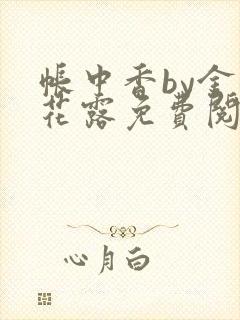 帐中香by金
花露免費閱
心月白